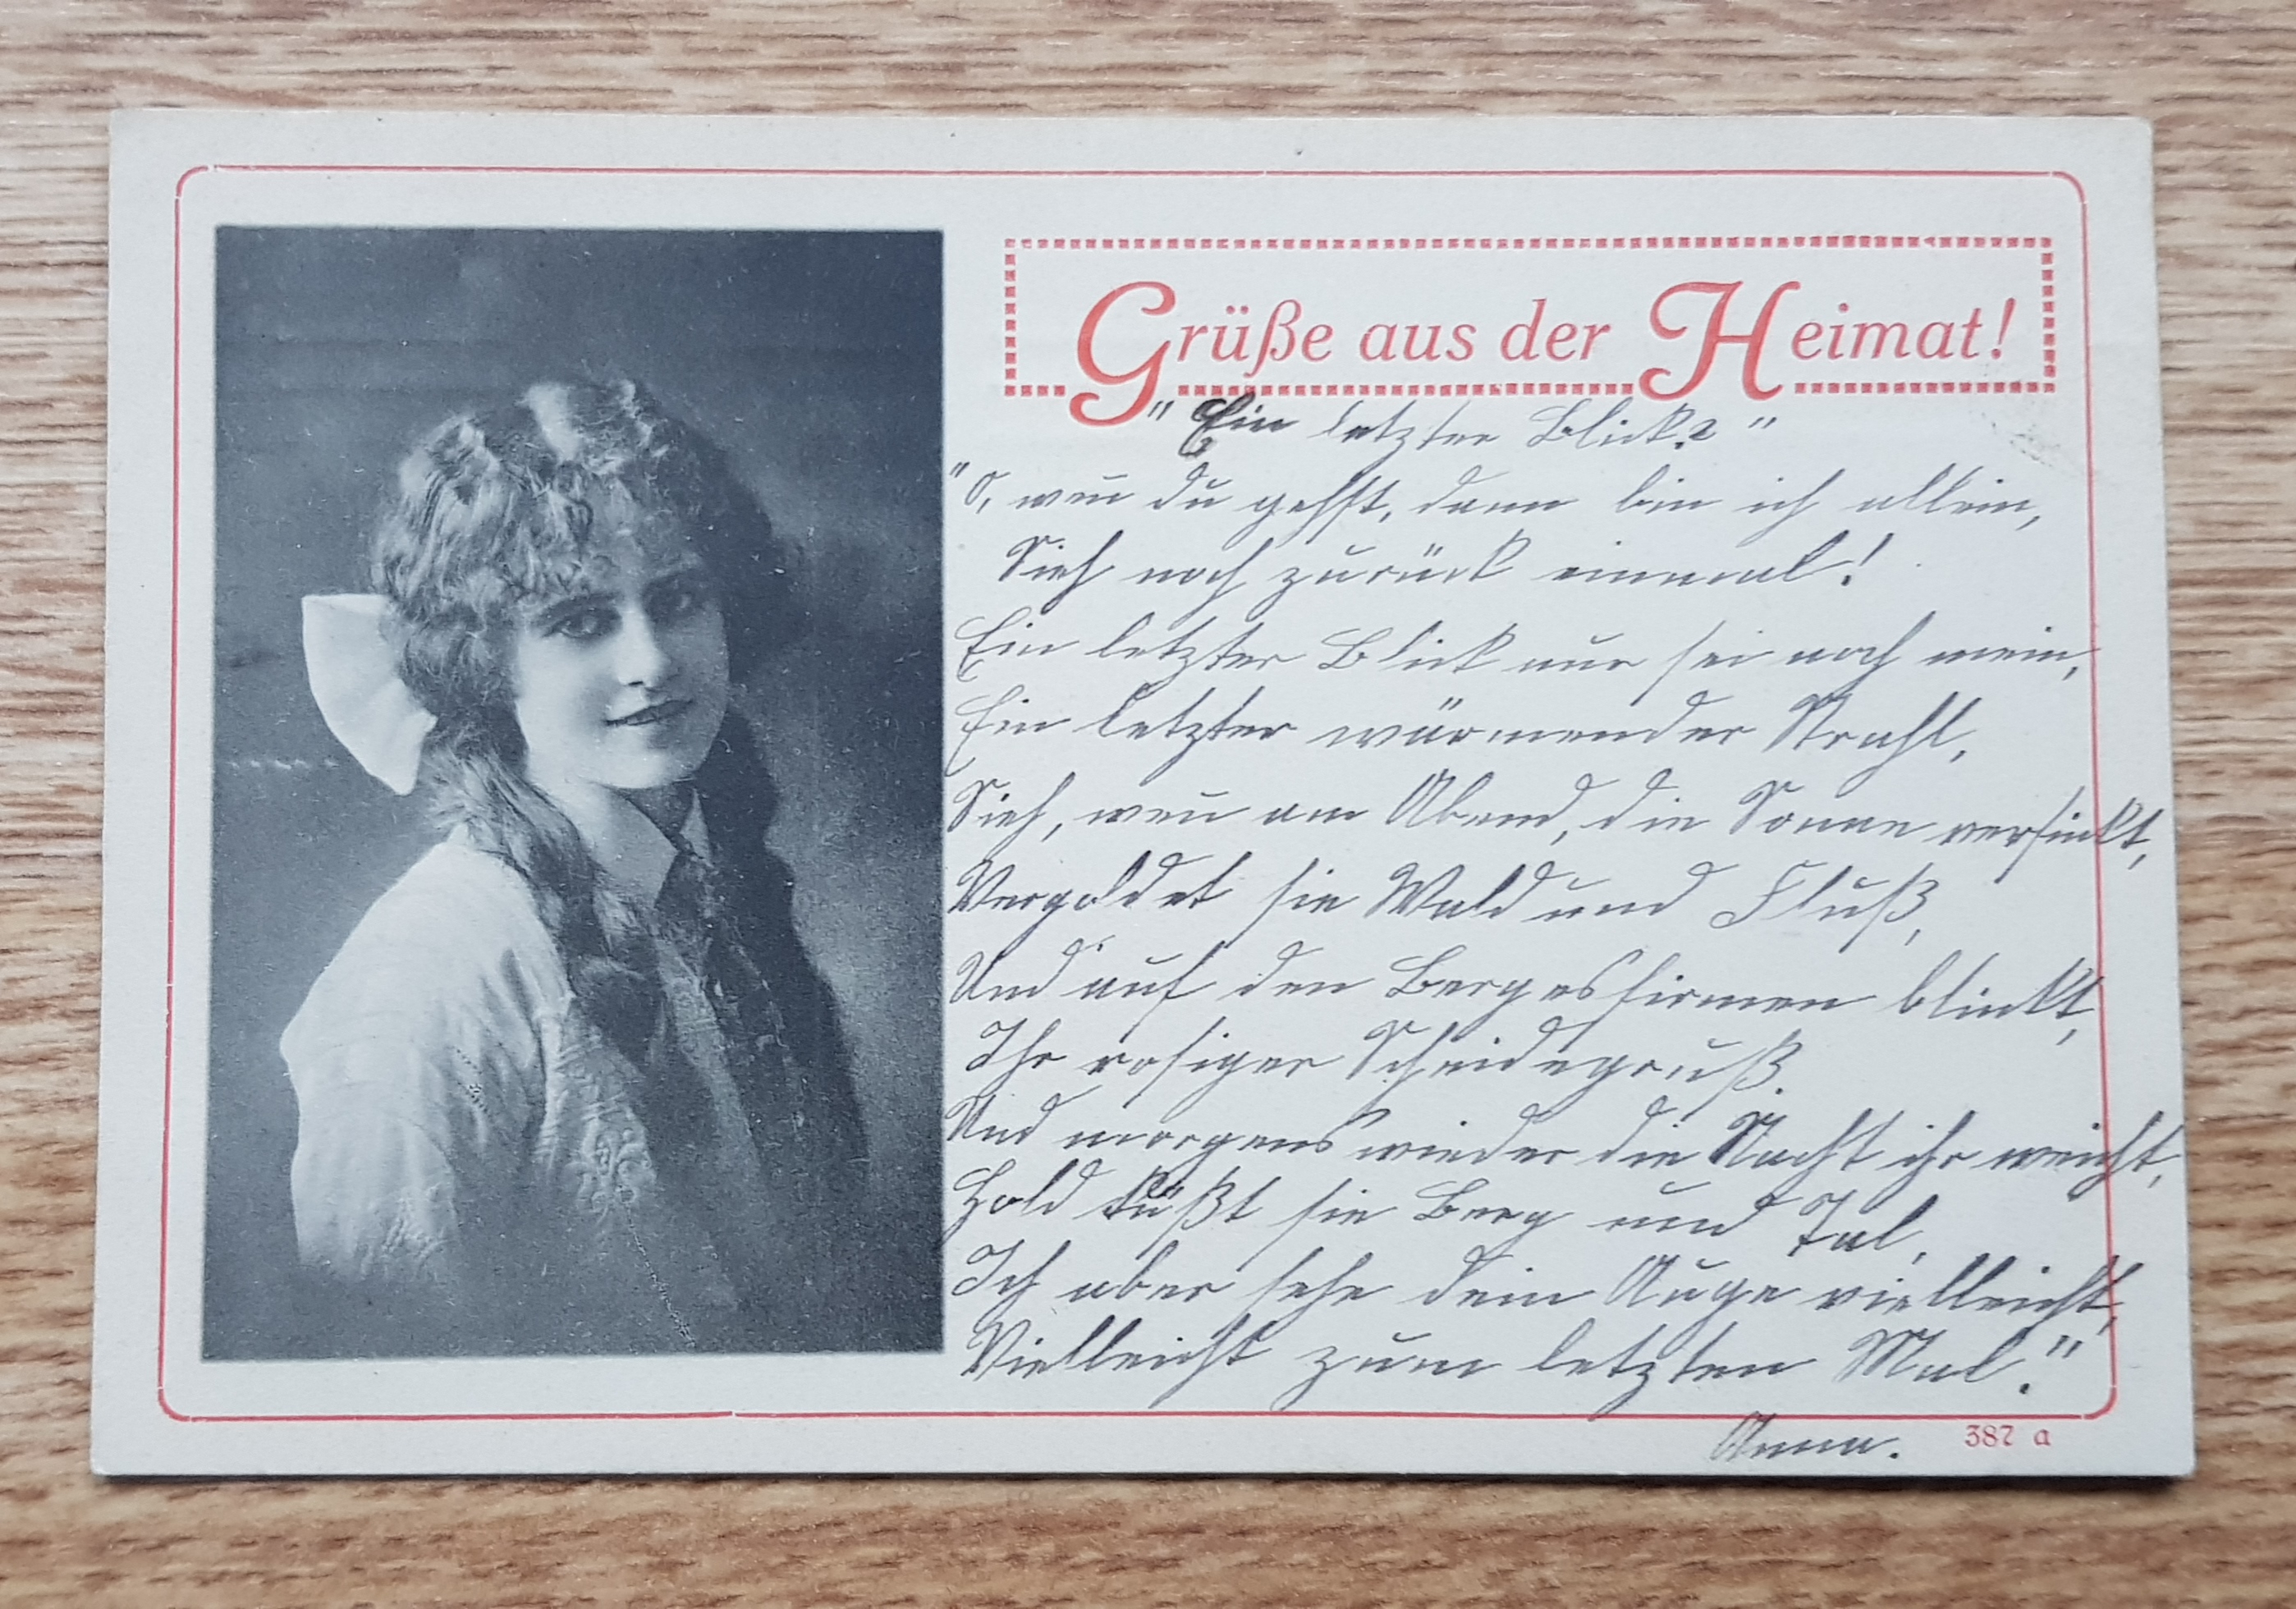 Grüße aus der Heimat!
"Ein letzter Blick?"
"O, weñ du gehst, dann bin ich allein,
Sieh noch zurück einmal!
Ein letzter Blick nur sei noch mein,
Ein letzter wärmender Strahl,
Sieh, weñ am Abend, die Sonne versinkt,
Vergoldet sie Wald und Fluß,
Und auf den Bergesfirnen blinkt,
Ihr rosiger Scheidegruß.
Und morgens wieder die Nacht ihr weicht,
Hold küßt sie Berg und Tal,
Ich aber sehe dein Auge vielleicht,
Vielleicht zum letzten Mal."
Anna.
387 a